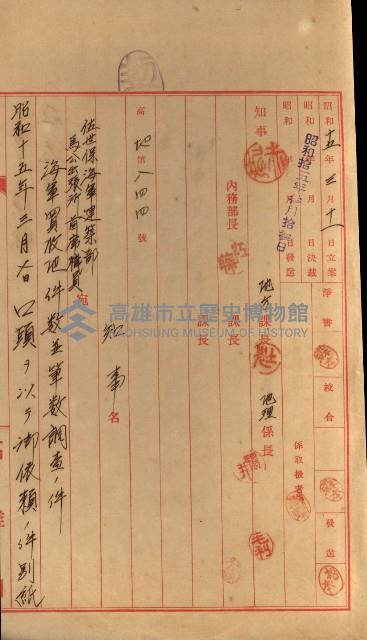 昭和十五年三月十一日立案
昭和 年 月 日決裁
昭和 年 月 日發送
昭和拾五年 月拾 日
淨書
校合
發送
知事
內務部長
地方課長
課長
課長
地理係長
係取扱者
毛利
高地第八四四號
知事名
佐世保海軍建築部
馬公出張所首席部員宛
海軍買收地件數並筆數調査ノ件
昭和十五年三月 日口頭ヲ以テ御依頼ノ件別紙
高雄市立歷史博物館
KAOHSIUNG MUSEUM OF HISTORY